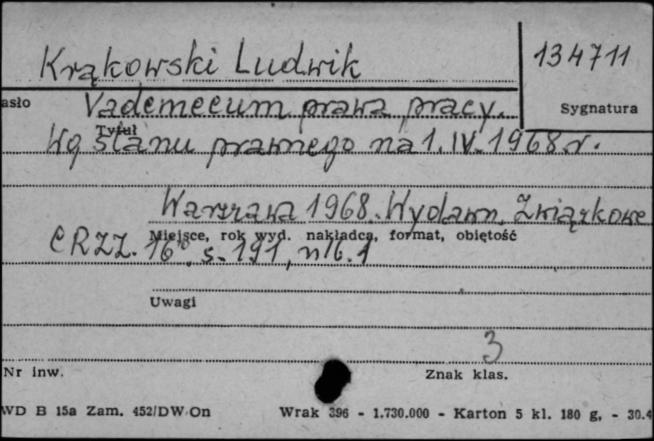 Krąkowski Ludwik
134711
asło
Vademecum prawa pracy.
Sygnatura
Tytuł
Wg stanu prawnego na 1. IV. 1968 r.
Warszawa 1968. Wydawn. Związkowe
Miejsce, rok wyd. nakładca, format, obiętość
CRZZ. 16°, s. 191, nlb. 1
Uwagi
3
Nr inw.
Znak klas.
WD B 15a Zam. 452/DW On Wrak 396 - 1.730.000 - Karton 5 kl. 180 g, - 30.4